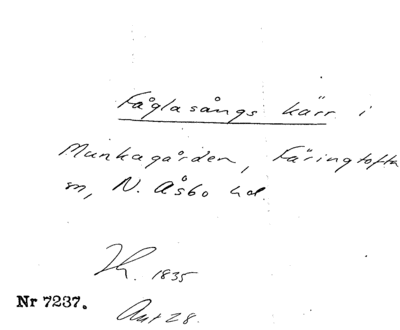 Fåglasångs kärr i
Munkagården, Färingtofta
sn, N. Åsbo hd.
Th. 1835
Nr 7237.
Ant 28.